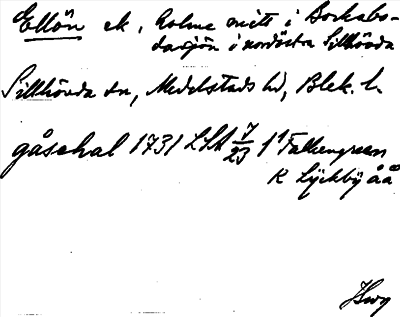 Ellön ek, holme mitt i Borkabs-
dasjön i nordöstra Sillhövda
Sillhövda sn, Medelstads hd, Blek. l.
gåsehal 1731 LSA 7/23 1¹ Falkengreen
K Lyckby åå